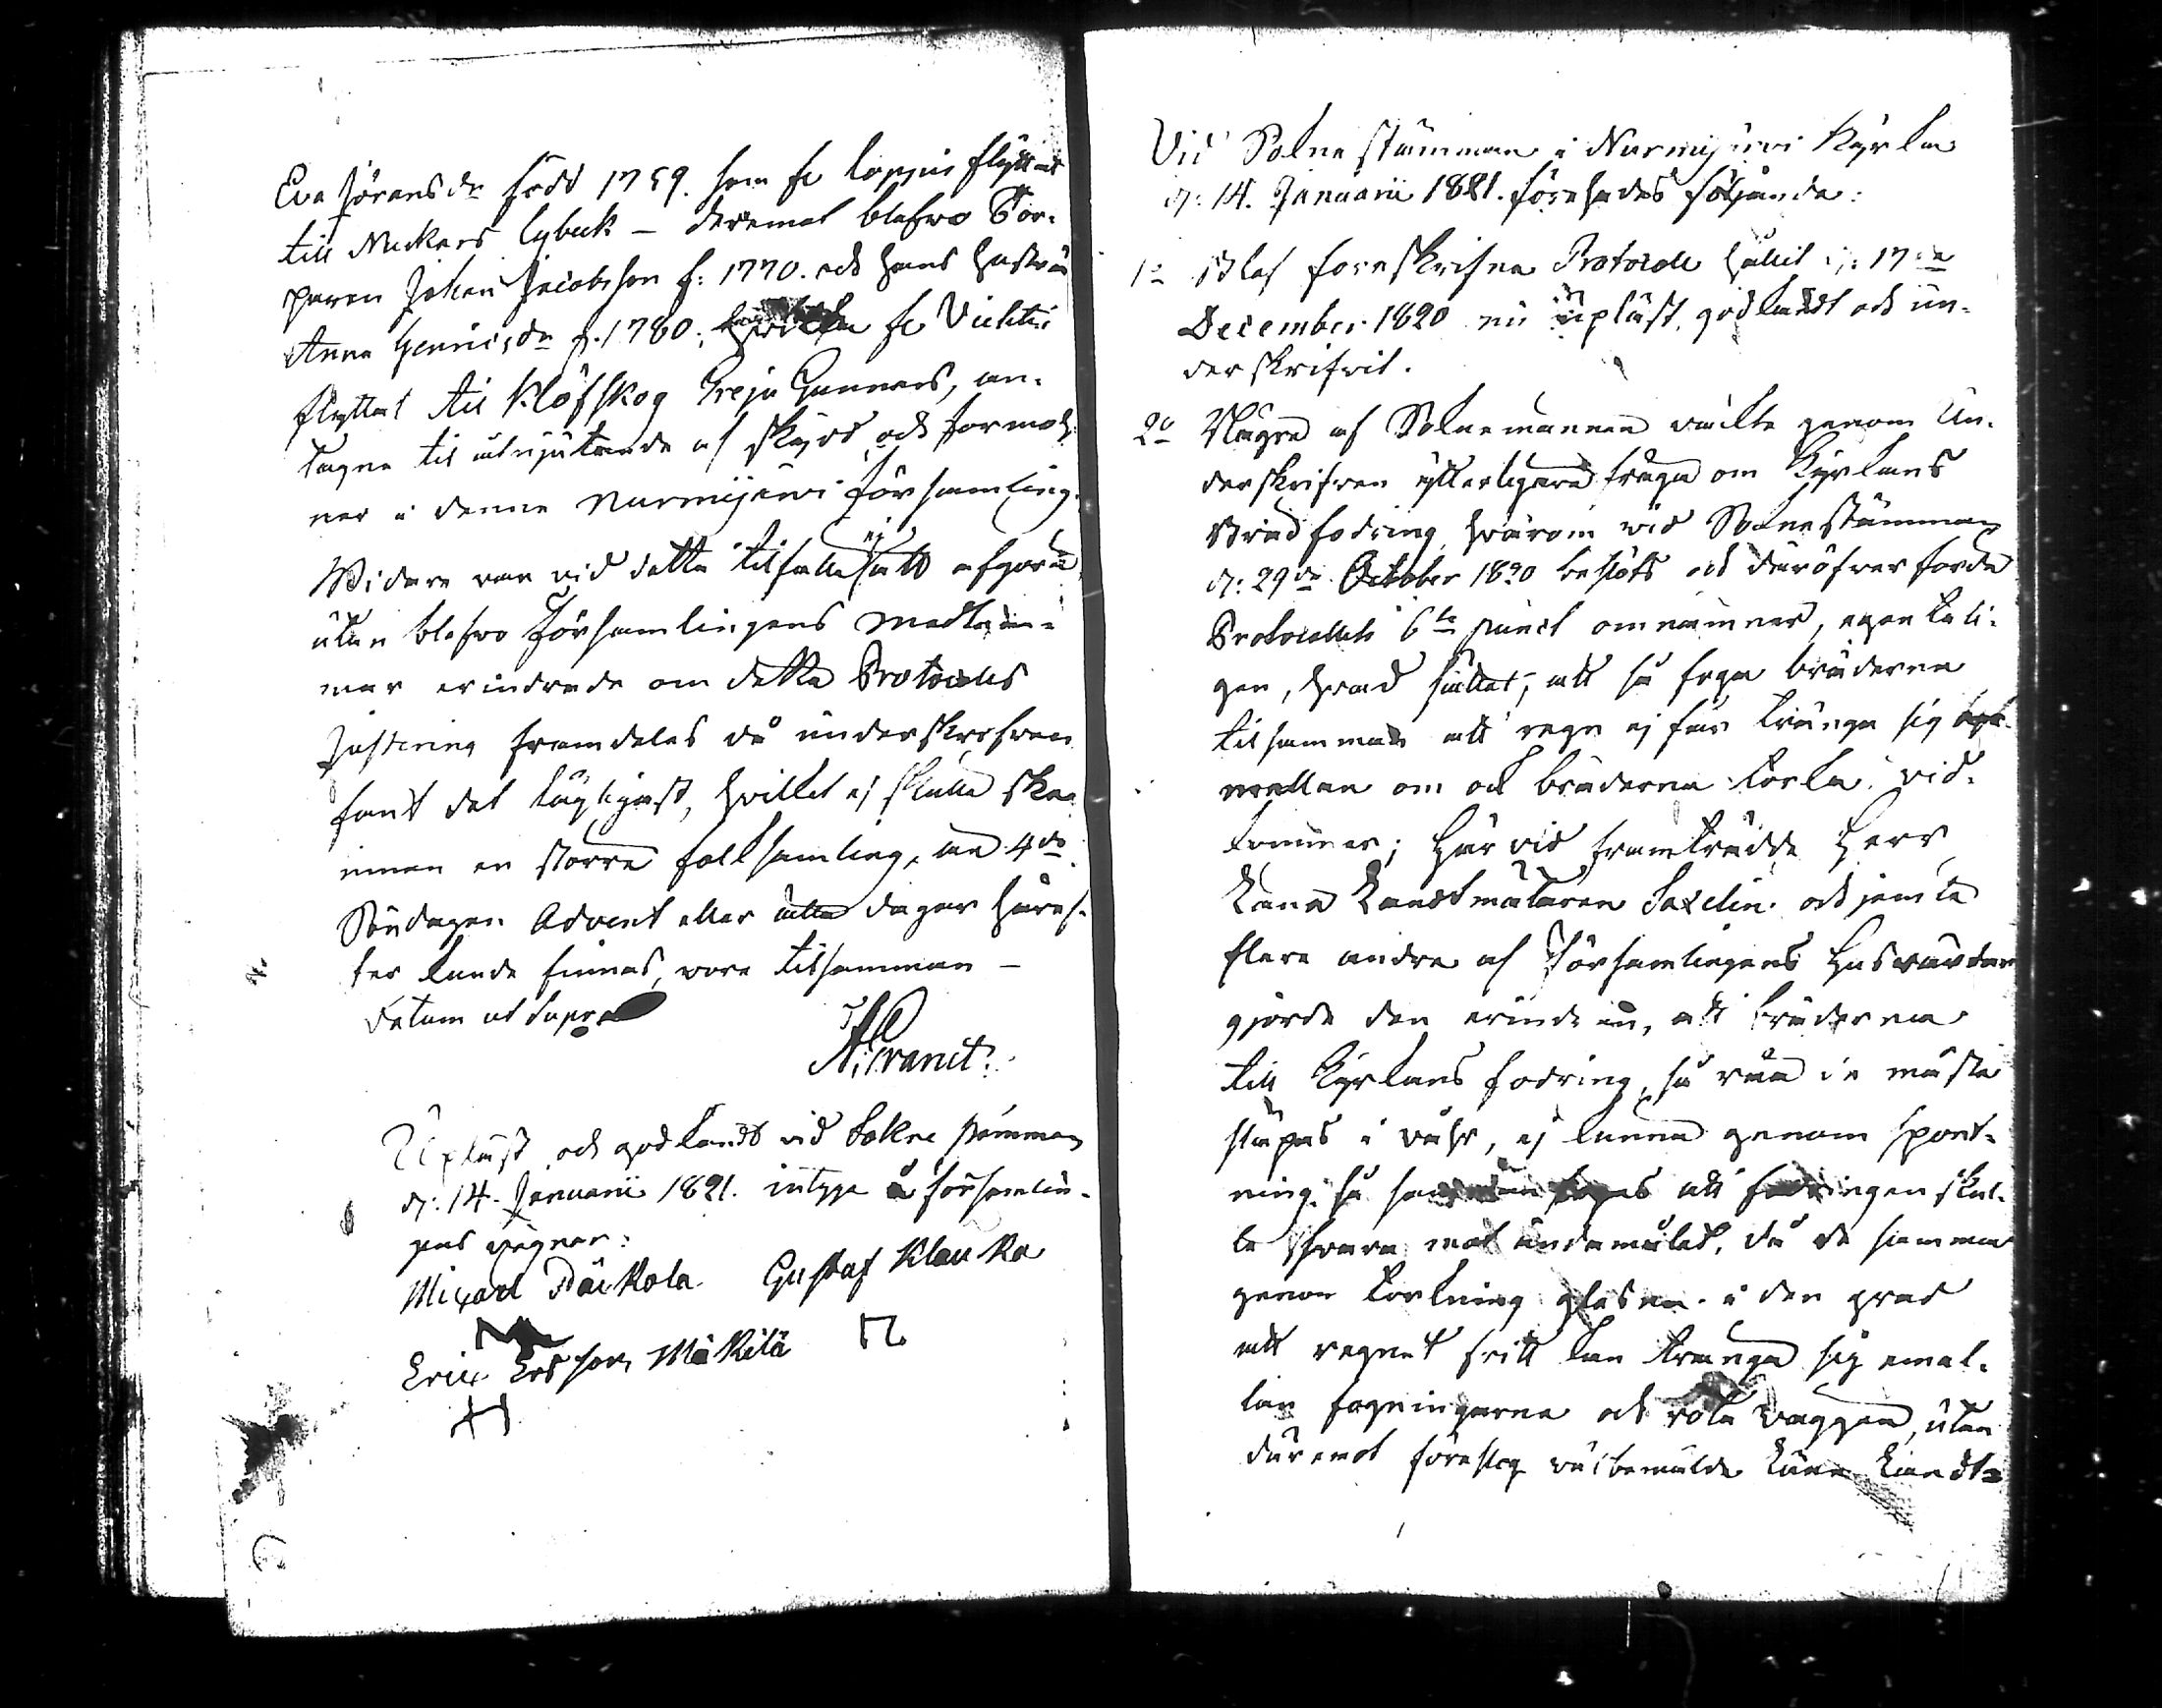 Eva Jöransdr född 1759. som fr Loppis flyttat
till Nuckars Lybeck – deremot blefvo Tor-
paren Johan Jacobsson f: 1770. och hans hustru
Anna Henricsdr f. 1780, fr Vichtis
flyttat til Klöfskog Greja Gunnars, an-
tagne til åtnjutande af skydd och förmoh-
ner i denne Nurmijerwi Församling.
Widare var vid detta tilfälle ej att afgöra
utan blefvo Församlingens medlem-
mar erindrade om detta Protocolls
Justering framdeles då underskrefven
fant det lägligast, hvilket ej skulle ske
innan en större folksamling, än 4de
Söndagen Advent eller åtta dagar häref-
ter kunde finnas, vore tilsamman –
Datum ut Supra
Upläst och godkändt vid Sokne stämman
d: 14. Januarii 1821. intyga å församlin-
gens vägnar:
Micael Päikola Gustaf Klauka
Eric Ersson Mäkilä
Vid Sokne stämman i Nurmijärvi Kyrka
d: 14. Januarii 1821. förehades följande:
1o Blef föreskrifne Protocoll hållit d: 17de
December 1820 nu upläst, godkändt och un-
derskrifvit.
2o Någre af Soknemännen väckte genom Un-
derskrifven ytterligare fråga om Kyrkans
Brädfodring, hvarom vid Sokne stämman
d: 29de October 1820 beslöts och däröfver förda
Protocollets 6te punct omnämner, egenteli-
gen, hvad sättet, att så foga bräderne
tilsamman att regn ej får tränga sig
mellan om ock bräderne torka, vid-
kommer; Härvid framträdde Herr
Läne Landtmätaren Saxelin och jemte
flere andre af Församlingens Husvärdar
gjorde den erindran, att bräderna
till Kyrkans fodring, så vida de måste
släpas i våhr, ej kunna genom spont-
ning så att fodringen skul-
le svara mot ändamålet, då de samma
genom torkning glesna i den grad
att regnet fritt kan tränga sig emel-
lan fogningarna och röta väggen, utan
däremot föreslog välbemälde Läne Landt-